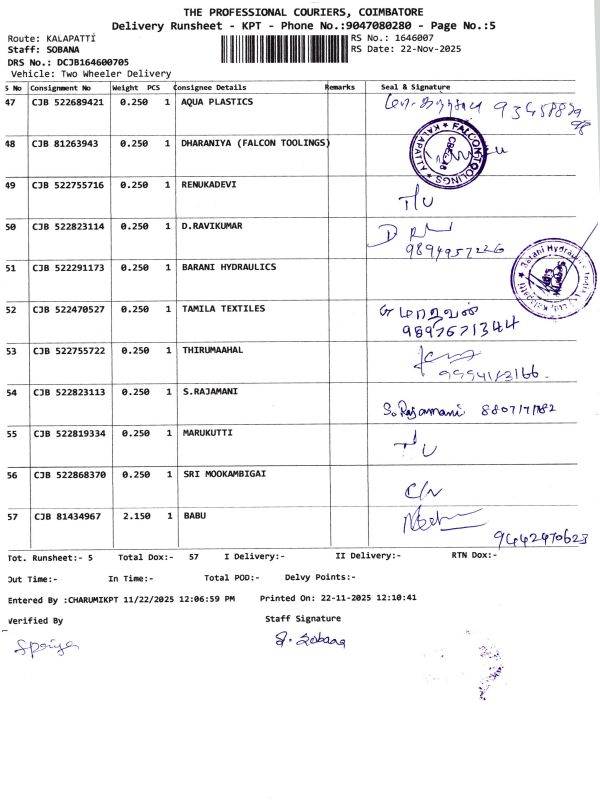 THE PROFESSIONAL COURIERS, COIMBATORE
Delivery Runsheet - KPT - Phone No.:9047080280 - Page No.:5
Route: KALAPATTI
RS No.: 1646007
Staff: SOBANA
RS Date: 22-Nov-2025
DRS No.: DCJB164600705
Vehicle: Two Wheeler Delivery
S No Consignment No Weight PCS Consignee Details Remarks Seal & Signature
47 CJB 522689421 0.250 1 AQUA PLASTICS
48 CJB 81263943 0.250 1 DHARANIYA (FALCON TOOLINGS)
FALCON TOOLINGS KALAPATTI
49 CJB 522755716 0.250 1 RENUKADEVI T/U
50 CJB 522823114 0.250 1 D.RAVIKUMAR
9894957226
51 CJB 522291173 0.250 1 BARANI HYDRAULICS
52 CJB 522470527 0.250 1 TAMILA TEXTILES
9897671344
53 CJB 522755722 0.250 1 THIRUMAAHAL
54 CJB 522823113 0.250 1 S.RAJAMANI
S. Rajamani
55 CJB 522819334 0.250 1 MARUKUTTI T/U
56 CJB 522868370 0.250 1 SRI MOOKAMBIGAI
C/N
57 CJB 81434967 2.150 1 BABU
9442470623
Tot. Runsheet:- 5 Total Dox:- 57 I Delivery:- II Delivery:- RTN Dox:-
Out Time:- In Time:- Total POD:- Delvy Points:-
Entered By :CHARUMIKPT 11/22/2025 12:06:59 PM Printed On: 22-11-2025 12:10:41
Verified By Staff Signature
S. Sobana